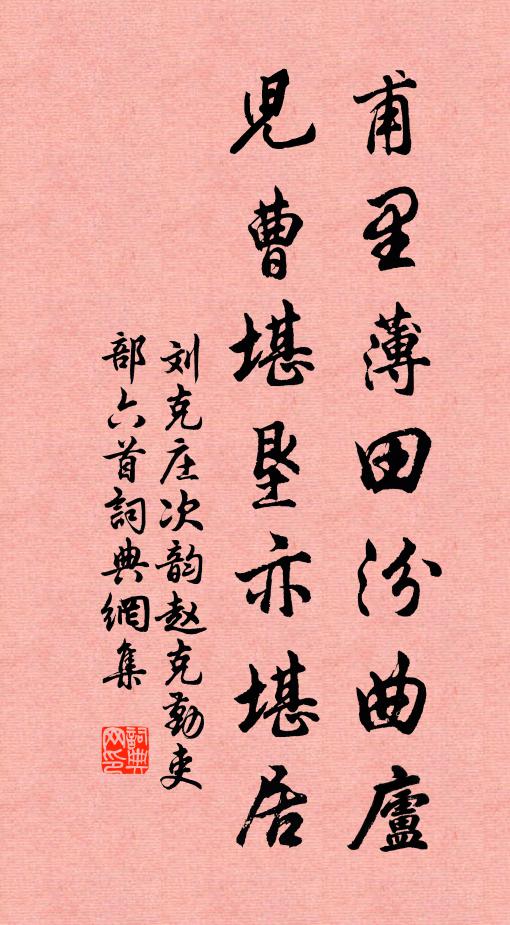 甫里薄田汾曲廬
兒曹堪垦亦堪居
刘克庄次韵赵克勤吏
部六首詞典網集
詞典
网印